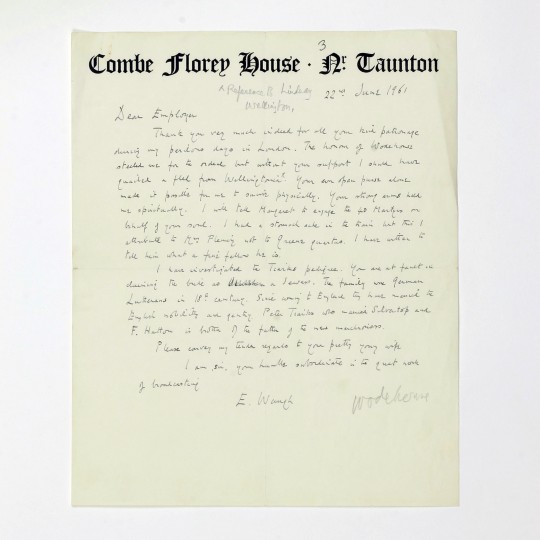 3
Combe Florey House · Nr Taunton
Reference to Lindsay
Wellington,
22nd June 1961
Dear Employer
Thank you very much indeed for all your kind patronage
during my perilous days in London. The honour of Wodehouse
steeled me for the ordeal but without your support I should have
quailed & fled from Wellington. Your ever open purse alone
made it possible for me to survive physically. Your strong arms held
me spiritually. I have told Margaret to engage the 40 Martyrs on
behalf of your soul. I had a stomach ache in the train but this I
attribute to Mrs Fleming not to Greene quarters. I have written to
tell him what a fine fellow he is.
I have investigated the pedigree. You are at fault in
the as a Jewess. The family were German
Lutherans in 18th century. Since coming to England they have married the
English nobility and gentry. Peter who married Silvertop and
F. Hutton is brother of the father of the new marchioness.
Please convey my tender regards to your pretty young wife
I am, sir, your humble subordinate in the great work
of broadcasting
E. Waugh
Wodehouse